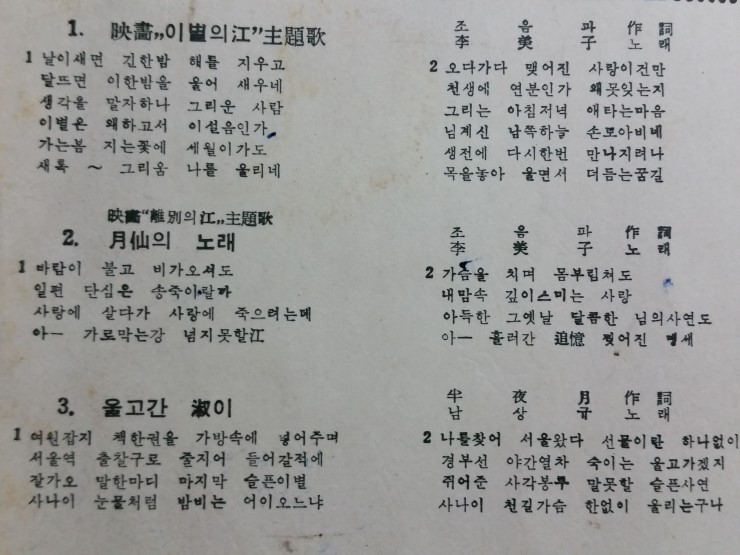 1. 映畵„이별의江"主題歌
조음파 作詞
李美子 노래
1 날이새면 긴한밤 해를 지우고
달뜨면 이한밤을 울어 새우네
생각을 말자하나 그리운 사람
이별은 왜하고서 이설음인가
가는봄 지는꽃에 세월이가도
새록 ~ 그리움 나를 울리네
2 오다가다 맺어진 사랑이건만
천생에 연분인가 왜못잊는지
그리는 아침저녁 애타는마음
님계신 남쪽하늘 손모아비네
생전에 다시한번 만나지려나
목을놓아 울면서 더듬는꿈길
映畵"離別의江„主題歌
2. 月仙의 노래
조음파 作詞
李美子 노래
1 바람이 불고 비가오셔도
일편 단심은 송죽이랄까
사랑에 살다가 사랑에 죽으려는데
아ㅡ 가로막는강 넘지못할江
2 가슴을 치며 몸부림쳐도
내맘속 깊이스미는 사랑
아득한 그옛날 달콤한 님의사연도
아ㅡ 흘러간 追憶 찢어진 맹세
3. 울고간 淑이
半夜月 作詞
남상규 노래
1 여원잡지 책한권을 가방속에 넣어주며
서울역 출찰구로 줄지어 들어갈적에
잘가오 말한마디 마지막 슬픈이별
사나이 눈물처럼 밤비는 어이오느냐
2 나를찾어 서울왔다 선물이란 하나없이
경부선 야간열차 숙이는 울고가겠지
쥐어준 사각봉투 말못할 슬픈사연
사나이 천길가슴 한없이 울리는구나